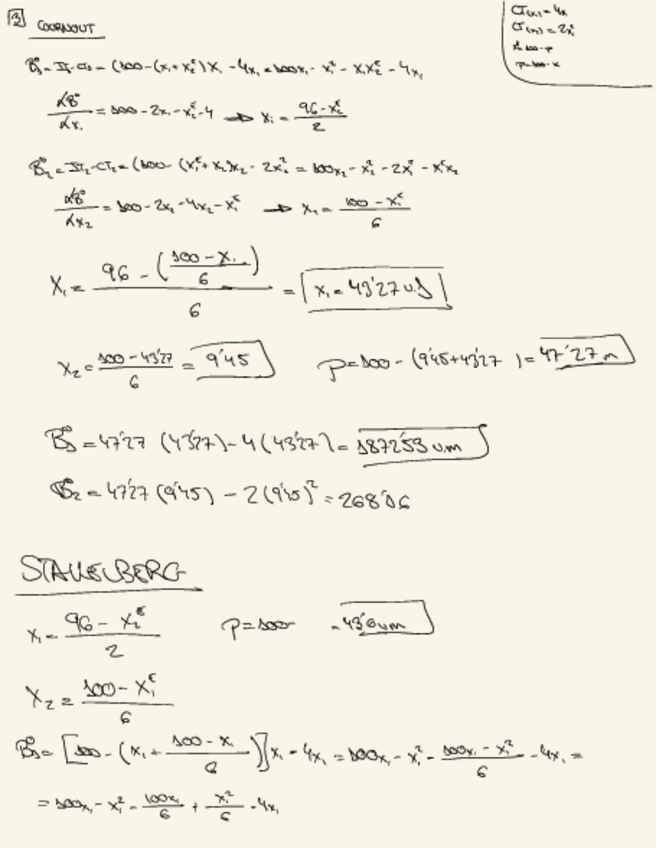 3 COURNOUT
CT(x₁) = 4x
CT(x₂) = 2x²
x=100-p
p=100-x
B₁º = IT-CT = (100-(x₁+x₂ᵉ))x₁ - 4x₁ = 100x₁ - x₁² - x₁x₂ᵉ - 4x₁
dBº/dx₁ = 100 - 2x₁ - x₂ᵉ - 4 → x₁ = (96-x₂ᵉ)/2
Bº₂ = IT₂-CT₂ = (100 - (x₁ᵉ+x₂)x₂ - 2x₂² = 100x₂ - x₂² - 2x² - x₁ᵉx₂
dBº/dx₂ = 100 - 2x₂ - 4x₂ - x₁ᵉ → x₂ = (100 - x₁ᵉ)/6
x₁ = (96 - ((100 - x₁)/6))/6 = x₁ = 43'27 u.f
x₂ = (100 - 43'27)/6 = 9'45 p = 100 - (9'45+43'27) = 47'27 m
Bº₁ = 47'27 (43'27) - 4 (43'27) = 1872'53 u.m
Bº₂ = 47'27 (9'45) - 2 (9'45)² = 268'16
STAKELBERG
x₁ = (96 - x₂ᵉ)/2 p = 100 - = 43'6 um
x₂ = (100 - x₁ᵉ)/6
Bº₁ = [100 - (x₁ + (100 - x₁)/6)]x₁ - 4x₁ = 100x₁ - x₁² - (100x₁ - x₁²)/6 - 4x₁ =
= 100x₁ - x₁² - 100x₁/6 + x₁²/6 - 4x₁